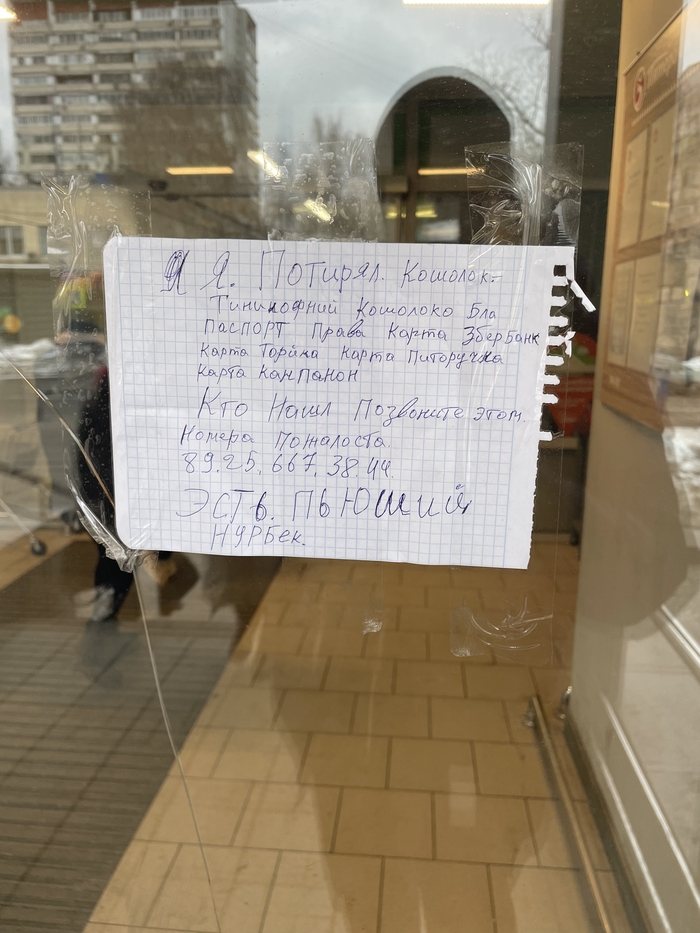 Я. Потирял. Кошолок.
Тиникофний Кошолоко Бла
Паспорт Права Карта Збербанк
Карта Торйка Карта Питоручка
Карта Канпанон
Кто Нашл Позвоните этом.
Номера пожалоста
89.25.667.38.44.
Эсть. Пьюший
Нурбек.